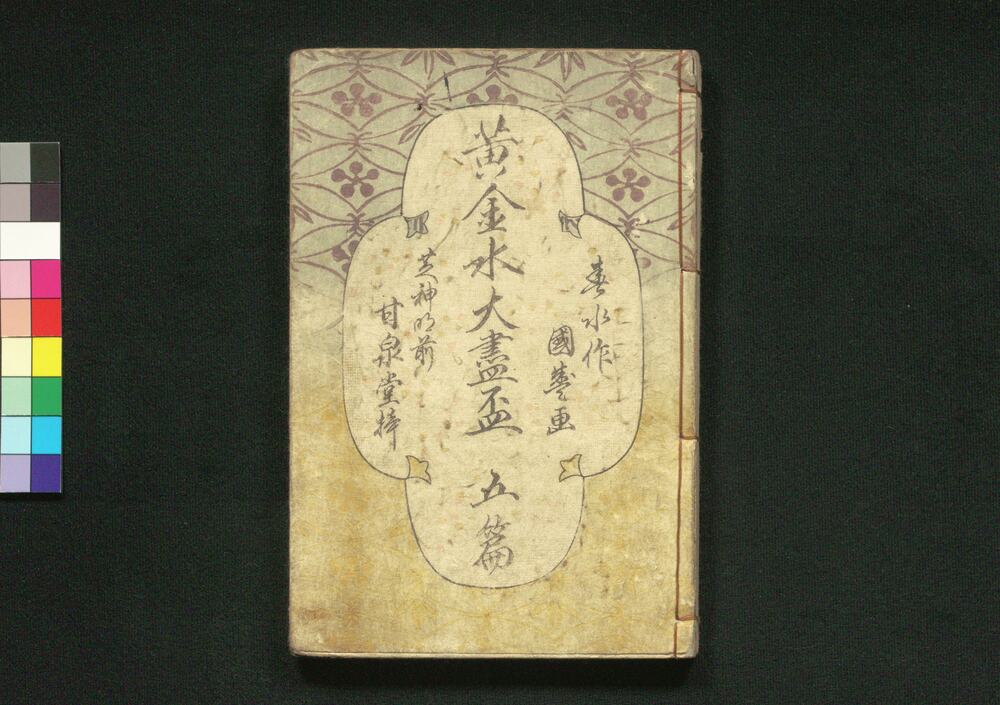 春水作
國藝画
黄金水大盡盃 五篇
芝神明前
甘泉堂梓